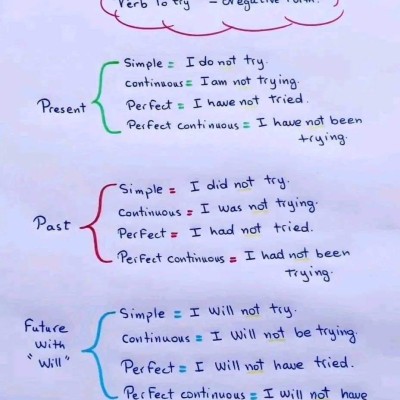 Verb To try - Negative Form.
Simple = I do not try.
continuous = I am not trying.
Present
Perfect = I have not tried.
Perfect continuous = I have not been
trying.
Simple = I did not try.
Continuous = I was not trying.
Past
Perfect = I had not tried.
Perfect continuous = I had not been
trying.
Simple = I will not try.
Future
with
"will"
Continuous = I will not be trying.
Perfect = I will not have tried.
Perfect continuous = I will not have